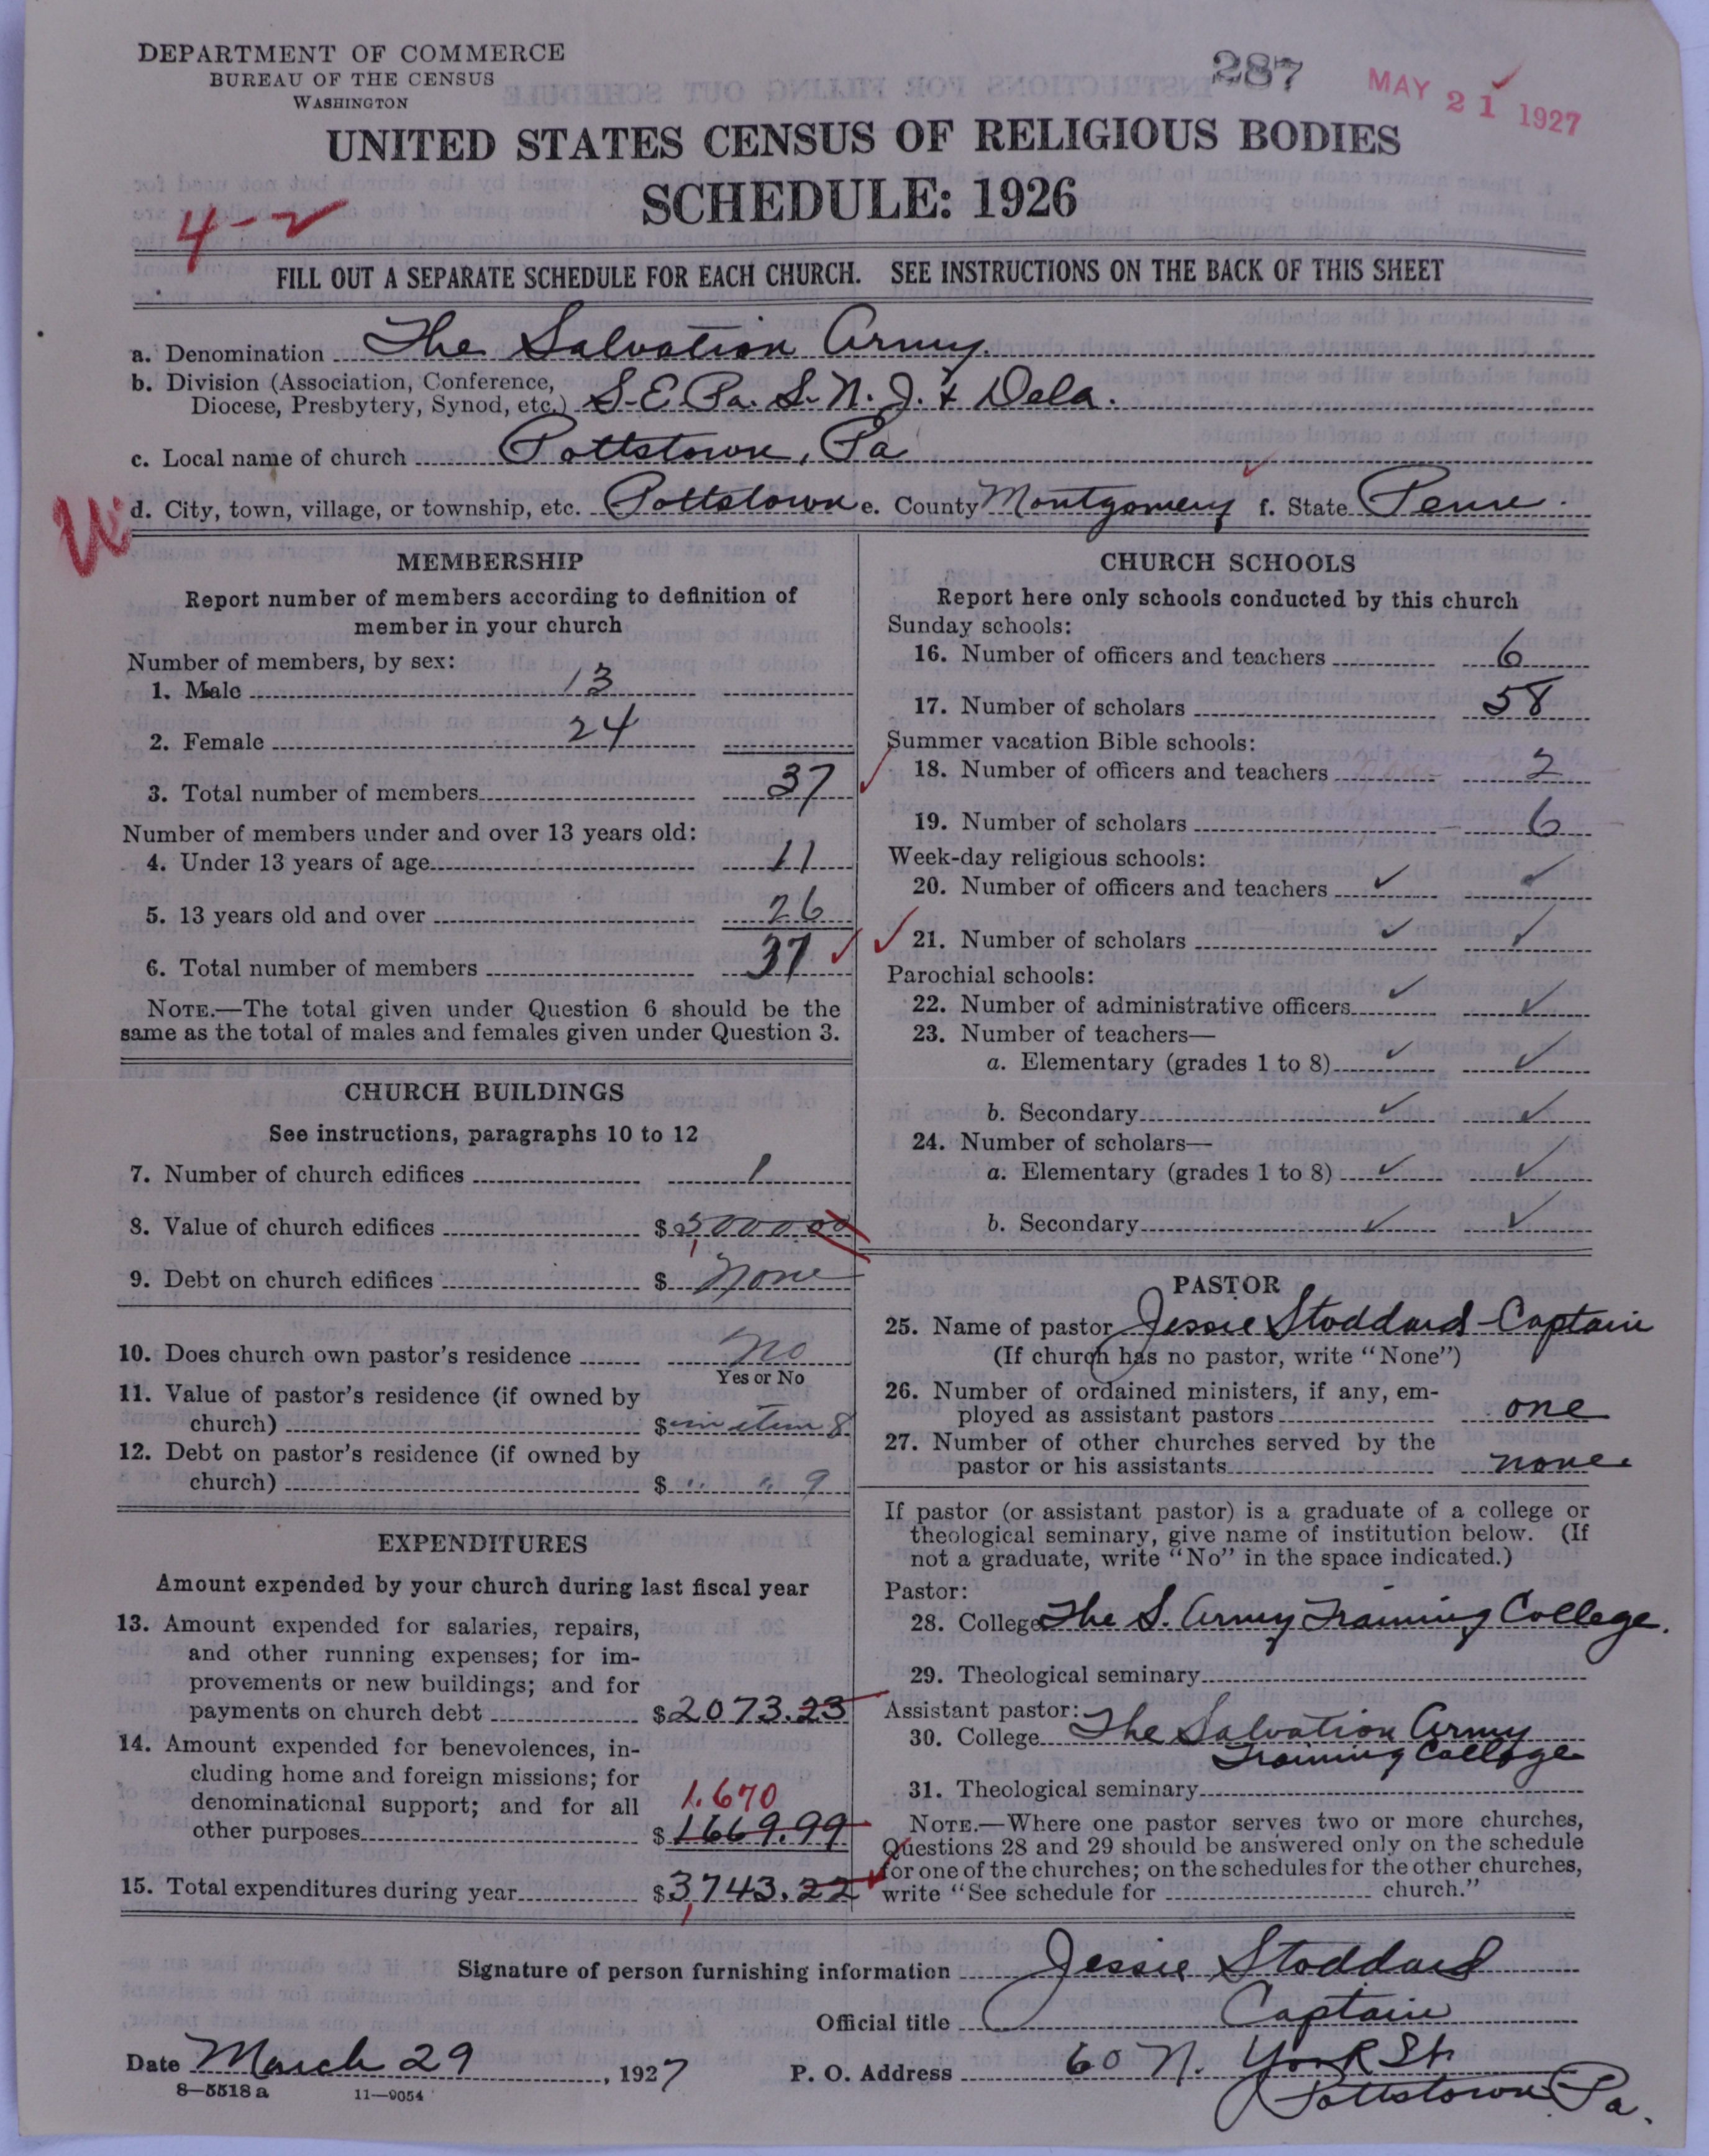 DEPARTMENT OF COMMERCE
BUREAU OF THE CENSUS
WASHINGTON
287
MAY 21 1927
UNITED STATES CENSUS OF RELIGIOUS BODIES
SCHEDULE: 1926
4-2
FILL OUT A SEPARATE SCHEDULE FOR EACH CHURCH. SEE INSTRUCTIONS ON THE BACK OF THIS SHEET
a. Denomination The Salvation Army.
b. Division (Association, Conference,
Diocese, Presbytery, Synod, etc.) S.E. Pa. S. N. J. & Dela.
c. Local name of church Pottstown, Pa
d. City, town, village, or township, etc. Pottstown e. County Montgomery f. State Penn.
MEMBERSHIP
Report number of members according to definition of
member in your church
Number of members, by sex:
1. Male 13
2. Female 24
3. Total number of members 37
Number of members under and over 13 years old:
4. Under 13 years of age 11
5. 13 years old and over 26
6. Total number of members 37
NOTE.—The total given under Question 6 should be the
same as the total of males and females given under Question 3.
CHURCH BUILDINGS
See instructions, paragraphs 10 to 12
7. Number of church edifices 1
8. Value of church edifices $
9. Debt on church edifices $ None
10. Does church own pastor's residence No
Yes or No
11. Value of pastor's residence (if owned by
church) $ in item 8
12. Debt on pastor's residence (if owned by
church) $ " " 9
EXPENDITURES
Amount expended by your church during last fiscal year
13. Amount expended for salaries, repairs,
and other running expenses; for im-
provements or new buildings; and for
payments on church debt $2073.23
14. Amount expended for benevolences, in-
cluding home and foreign missions; for
denominational support; and for all 1,670
other purposes $1669.99
15. Total expenditures during year $3,743.22
CHURCH SCHOOLS
Report here only schools conducted by this church
Sunday schools:
16. Number of officers and teachers 6
17. Number of scholars 58
Summer vacation Bible schools:
18. Number of officers and teachers 2
19. Number of scholars 6
Week-day religious schools:
20. Number of officers and teachers ✓ ✓
21. Number of scholars ✓ ✓
Parochial schools:
22. Number of administrative officers ✓ ✓
23. Number of teachers—
a. Elementary (grades 1 to 8) ✓ ✓
b. Secondary ✓ ✓
24. Number of scholars—
a. Elementary (grades 1 to 8) ✓ ✓
b. Secondary ✓ ✓
PASTOR
25. Name of pastor Jessie Stoddard - Captain
(If church has no pastor, write "None")
26. Number of ordained ministers, if any, em-
ployed as assistant pastors one
27. Number of other churches served by the
pastor or his assistants none.
If pastor (or assistant pastor) is a graduate of a college or
theological seminary, give name of institution below. (If
not a graduate, write "No" in the space indicated.)
Pastor:
28. College The S. Army Training College.
29. Theological seminary
Assistant pastor:
30. College The Salvation Army
Training College
31. Theological seminary
NOTE.—Where one pastor serves two or more churches,
Questions 28 and 29 should be answered only on the schedule
for one of the churches; on the schedules for the other churches,
write "See schedule for church."
Signature of person furnishing information Jessie Stoddard
Official title Captain
Date March 29, 1927 P. O. Address 60 N. York St.
Pottstown Pa.
8—5518 a 11—9054